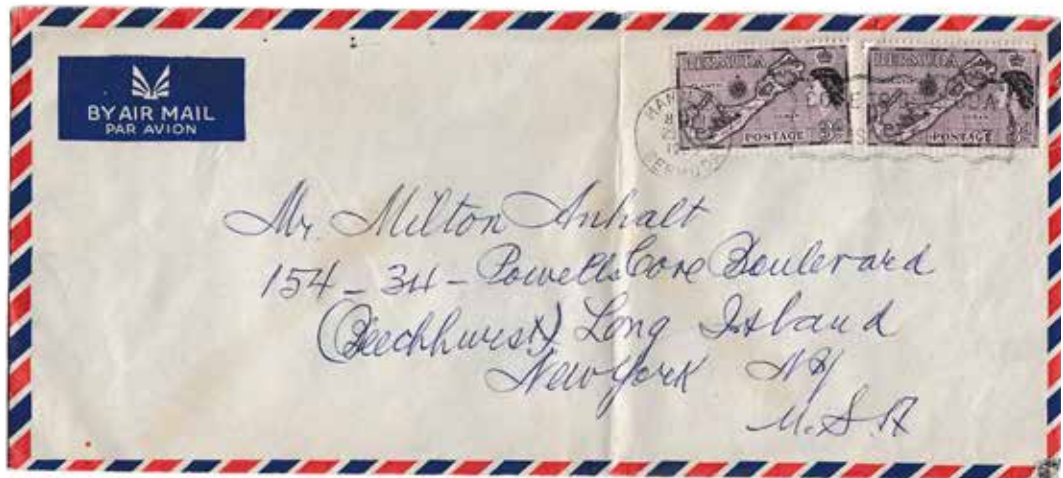 BY AIR MAIL
PAR AVION
BERMUDA
POSTAGE
BERMUDA
POSTAGE
BERMUDA
Mr. Milton Anhalt
154-34-Powells Cove Boulevard
(Beechhurst) Long Island
New York NY
U.S.A